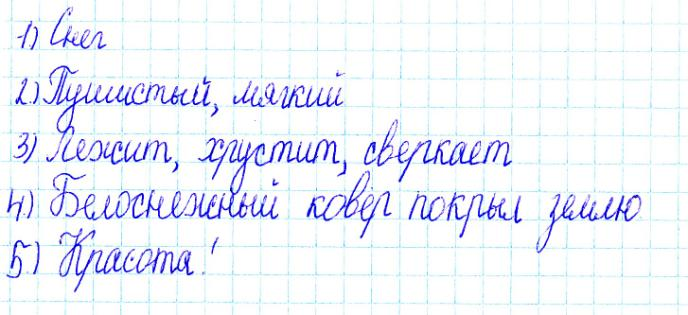 1) Снег
2) Пушистый, мягкий
3) Лежит, хрустит, сверкает
4) Белоснежный ковёр покрыл землю
5) Красота!